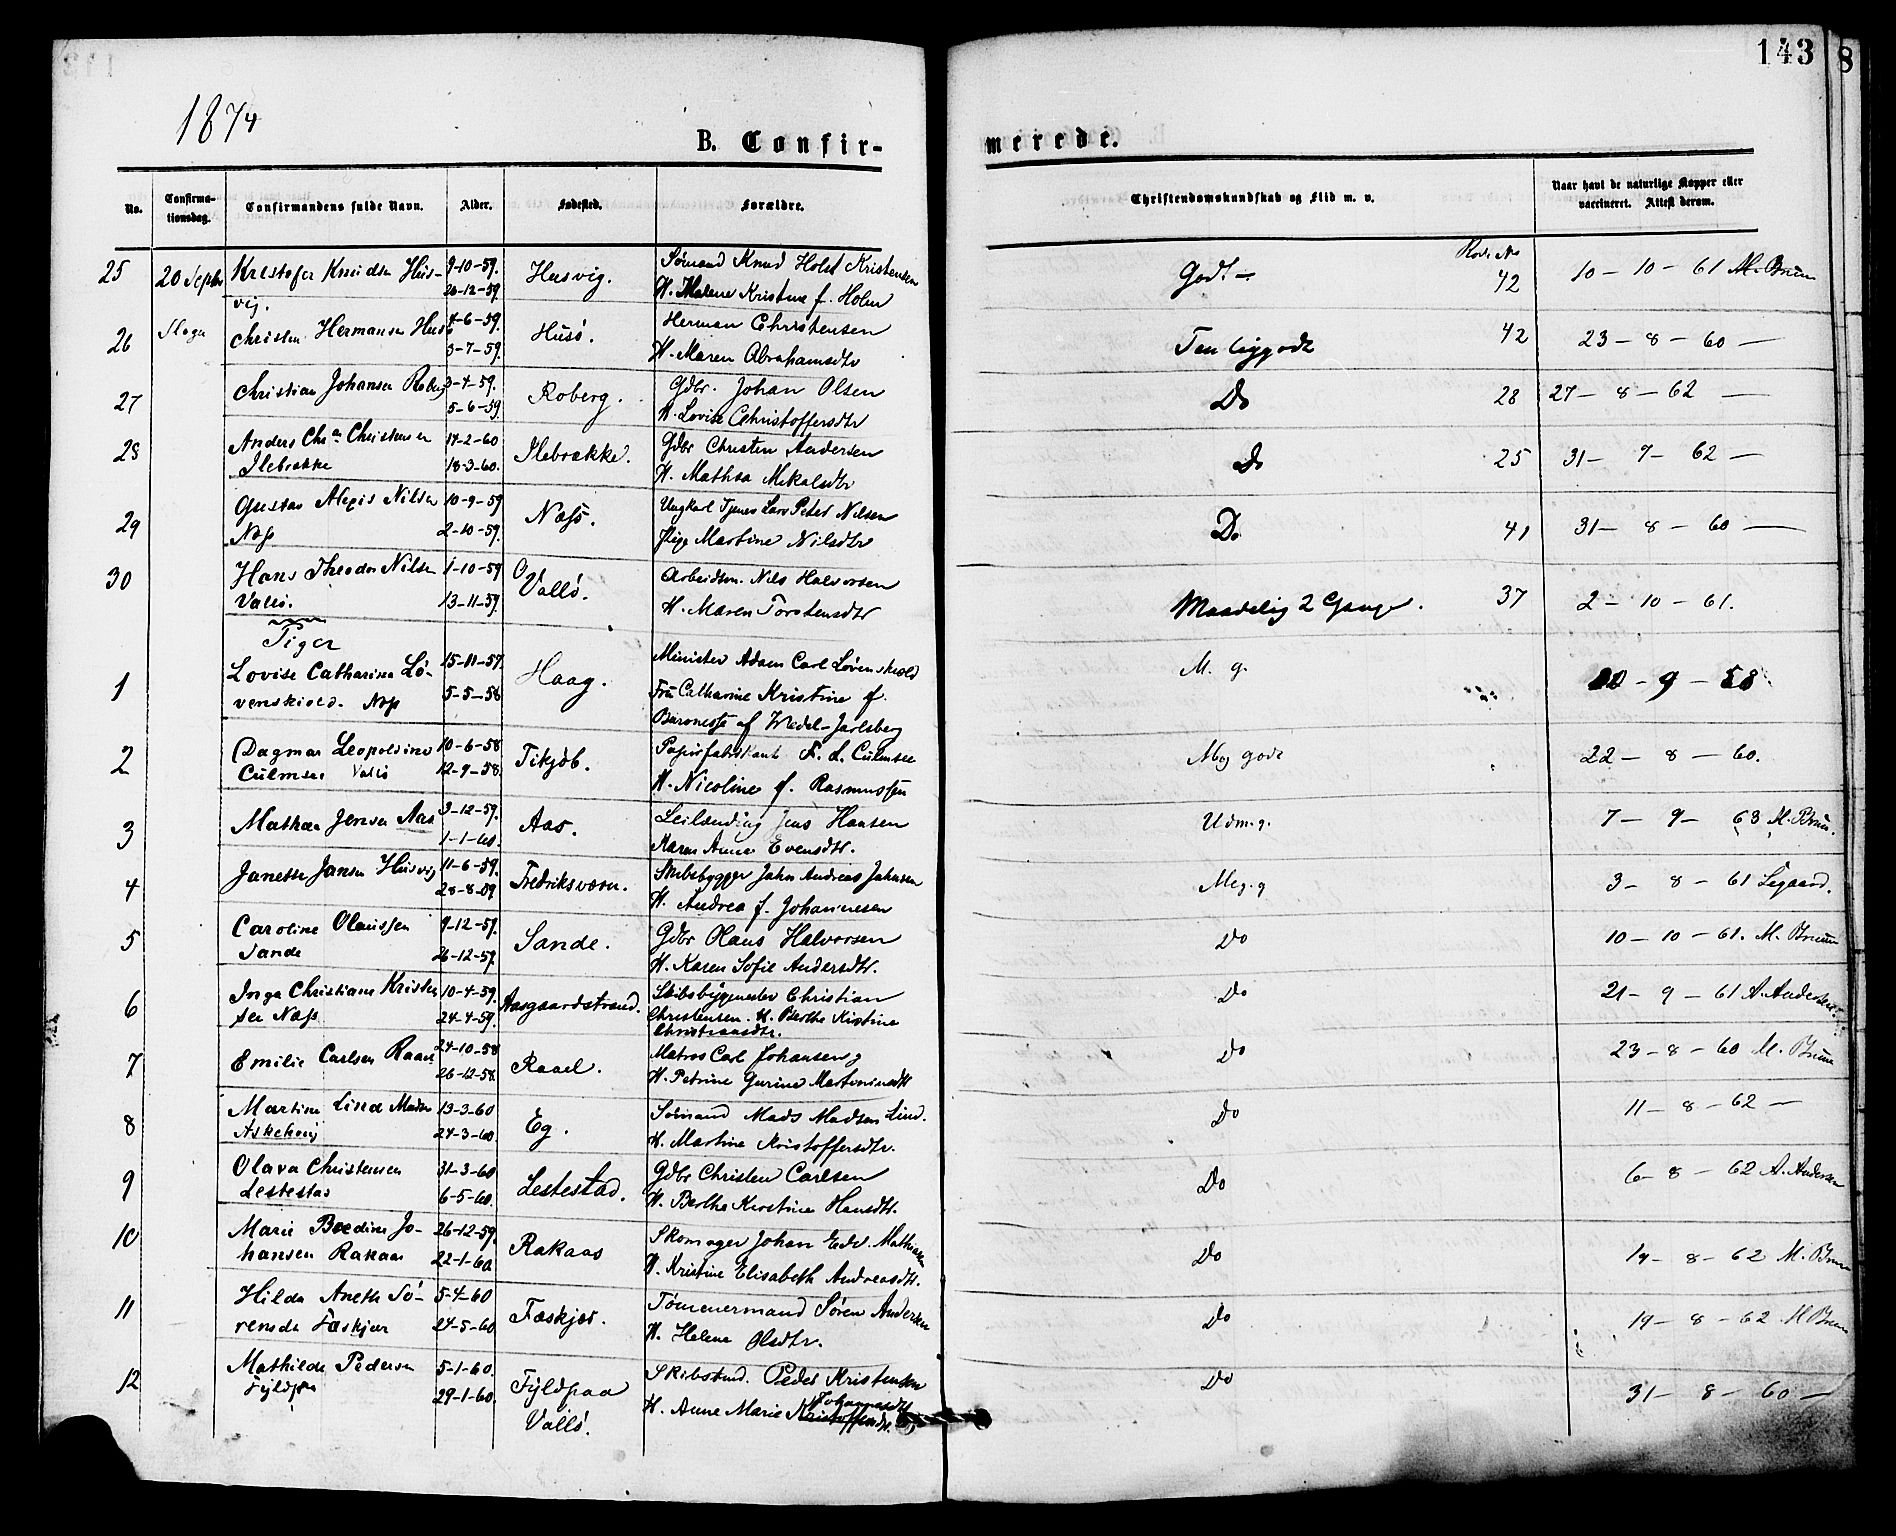 143
8
1874
B. Confir-
merede.
No.
Confirma-
tionsdag.
Confirmandens fulde Navn.
Alder.
Fødested.
Forældre.
Christendomskundskab og Flid m. v.
Naar havt de naturlige Kopper eller
vaccineret. Attest derom.
25 20 Septbr Kristofer Knudsen Hus- 9-10-59. Husvig. Sømand Knud Holst Kristensen Godt — 42 10 - 10 - 61 M. Bruun
vig. 26-12-59. H. Malene Kristine f. Holm
26 Christen Hermansen Husø 4-6-59. Husø. Herman Christensen 42 23 - 8 - 60 —
3-7-59. H. Maren Abrahamsdtr
27 Christian Johansen Roberg 3-4-59. Roberg. Gdbr. Johan Olsen Do 28 27 - 8 - 62 —
5-6-59. H. Lovise Christoffersdtr
28 Anders Chr. Christensen 17-2-60 Ilebrække. Gdbr Christen Andersen Do 25 31 - 7 - 62 —
Ilebrække 18-3-60. H. Mathea Mikalsdtr
29 Gustav Alexis Nilsen 10-9-59 Næss. Ungkarl Tjener Lars Peter Nilsen Do 41 31 - 8 - 60 —
Næss 2-10-59. Pige Martine Nilsdtr
30 Hans Theodor Nilsen 1-10-59 Vallø. Arbeidsm. Nils Halvorsen Maadelig 2 Gange. 37 2 - 10 - 61.
Vallø. 13-11-59. H. Maren Torstensdtr
Piger
1 Lovise Catharina Lø- 15-11-57. Haag. Minister Adam Carl Løvenskiold M. g. - 9 - 58
venskiold. Næss 5-5-58 Fru Catharine Kristine f.
Baronesse af Wedel-Jarlsberg
2 Dagmar Leopoldine 10-6-58 Tikjøb. Papirfabrikant F. L. Culmsee Meg godt 22 - 8 - 60.
Culmsee Vallø 12-9-58. H. Nicoline f. Rasmussen
3 Mathea Jensen Aas 3-12-59. Aas. Leilænding Jens Hansen Udm. g. 7 - 9 - 63 M. Bruun.
1-1-60. Karen Anne Evensdtr.
4 Janette Jansen Husvig 11-6-59. Fredriksværn. Skibsbygger Jahn Andreas Jahnsen Meg. g 3 - 8 - 61 Legaard.
28-8-59 H. Andrea f. Johannesen
5 Caroline Olaussen 9-12-59. Sande. Gdbr Olaus Halvorsen Do 10 - 10 - 61. M. Bruun
Sande 26-12-59. H. Karen Sofie Andersdtr.
6 Inga Christiane Kristen 10-4-59. Aasgaardstrand. Skibsbygmester Christian Do 21 - 9 - 61 A. Andersen
sen Næss 24-4-59. Christensen. H. Berthe Kristine
Christiansdtr.
7 Emilie Carlsen Raael 24-10-58 Raael. Matros Carl Johansen Do 23 - 8 - 60 M. Bruun
26-12-58. H. Petrine Gurine Martinusdtr
8 Martine Lind Madsen 13-3-60 Eg. Sømand Mads Madsen Lind. Do 11 - 8 - 62 —
Askehoug 24-3-60. H. Martine Kristoffersdtr.
9 Olava Christensen 31-3-60 Lestestad. Gdbr Christen Carlsen Do 6 - 8 - 62 A. Andersen
Lestestad 6-5-60. H. Berthe Kirstine Hansdtr.
10 Marie Bredine Jo- 26-12-59. Rakaas Skomager Johan Edv. Mathisen Do 19 - 8 - 62 M. Bruun
hansen Rakaas 22-1-60 H. Kristine Elisabeth Andreasdtr.
11 Hilda Aneth Sø- 5-4-60 Fæskjær. Tømmermand Søren Andersen Do 19 - 8 - 62 M Bruun
rensen Fæskjær 24-5-60 H. Helene Olsdtr.
12 Mathilde Pedersen 5-1-60. Fyldpaa Skibstmd. Peder Kristensen Do 31 - 8 - 60 —
Fyldpaa 29-1-60. Vallø. H. Anne Marie Johannesdtr